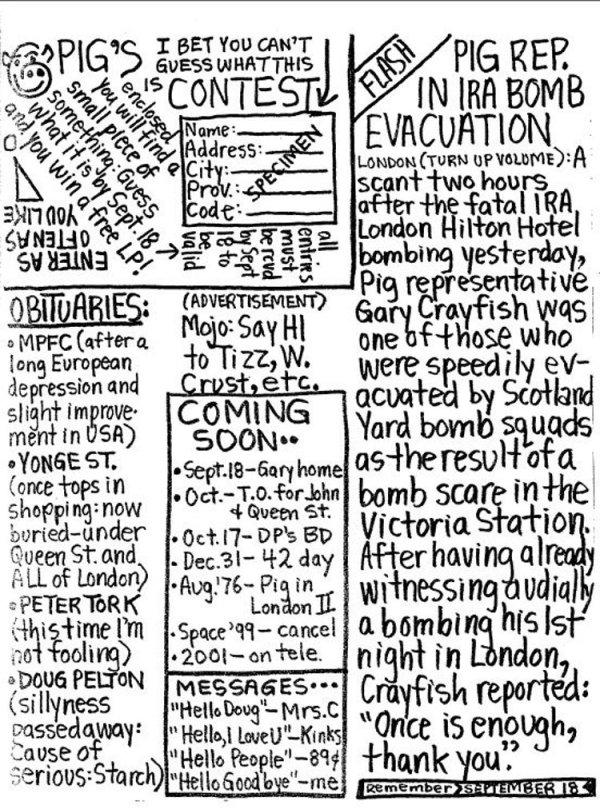 PIG'S I BET YOU CAN'T
GUESS WHAT THIS
IS
CONTEST
enclosed
you will find a
small piece of
something: Guess
what it is by Sept. 18
and you win a free LP!
ENTER AS
OFTEN AS
YOU LIKE
Name:
Address:
City:
Prov.:
Code:
SPECIMEN
all
entries
must
be rcvd
by Sept
18 to
be
valid
OBITUARIES:
• MPFC (after a
long European
depression and
slight improve-
ment in USA)
• YONGE ST.
(once tops in
shopping: now
buried-under
Queen St. and
ALL of London)
• PETER TORK
(this time I'm
not fooling)
• DOUG PELTON
(sillyness
passed away:
Cause of
serious: Starch)
(ADVERTISEMENT)
Mojo: Say HI
to Tizz, W.
Crust, etc.
COMING
SOON..
• Sept. 18 - Gary home
• Oct. - T.O. for John
& Queen St.
• Oct. 17 - DP's BD
• Dec. 31 - 42 day
• Aug. '76 - Pig in
London II
• Space '99 - cancel
• 2001 - on tele.
MESSAGES...
"Hello Doug" - Mrs. C
"Hello, I Love U" - Kinks
"Hello People" - 89¢
"Hello Good bye" - me
FLASH
PIG REP.
IN IRA BOMB
EVACUATION
LONDON (TURN UP VOLUME): A
scant two hours
after the fatal IRA
London Hilton Hotel
bombing yesterday,
Pig representative
Gary Crayfish was
one of those who
were speedily ev-
acuated by Scotland
Yard bomb squads
as the result of a
bomb scare in the
Victoria Station.
After having already
witnessing audially
a bombing his 1st
night in London,
Crayfish reported:
"Once is enough,
thank you."
Remember SEPTEMBER 18